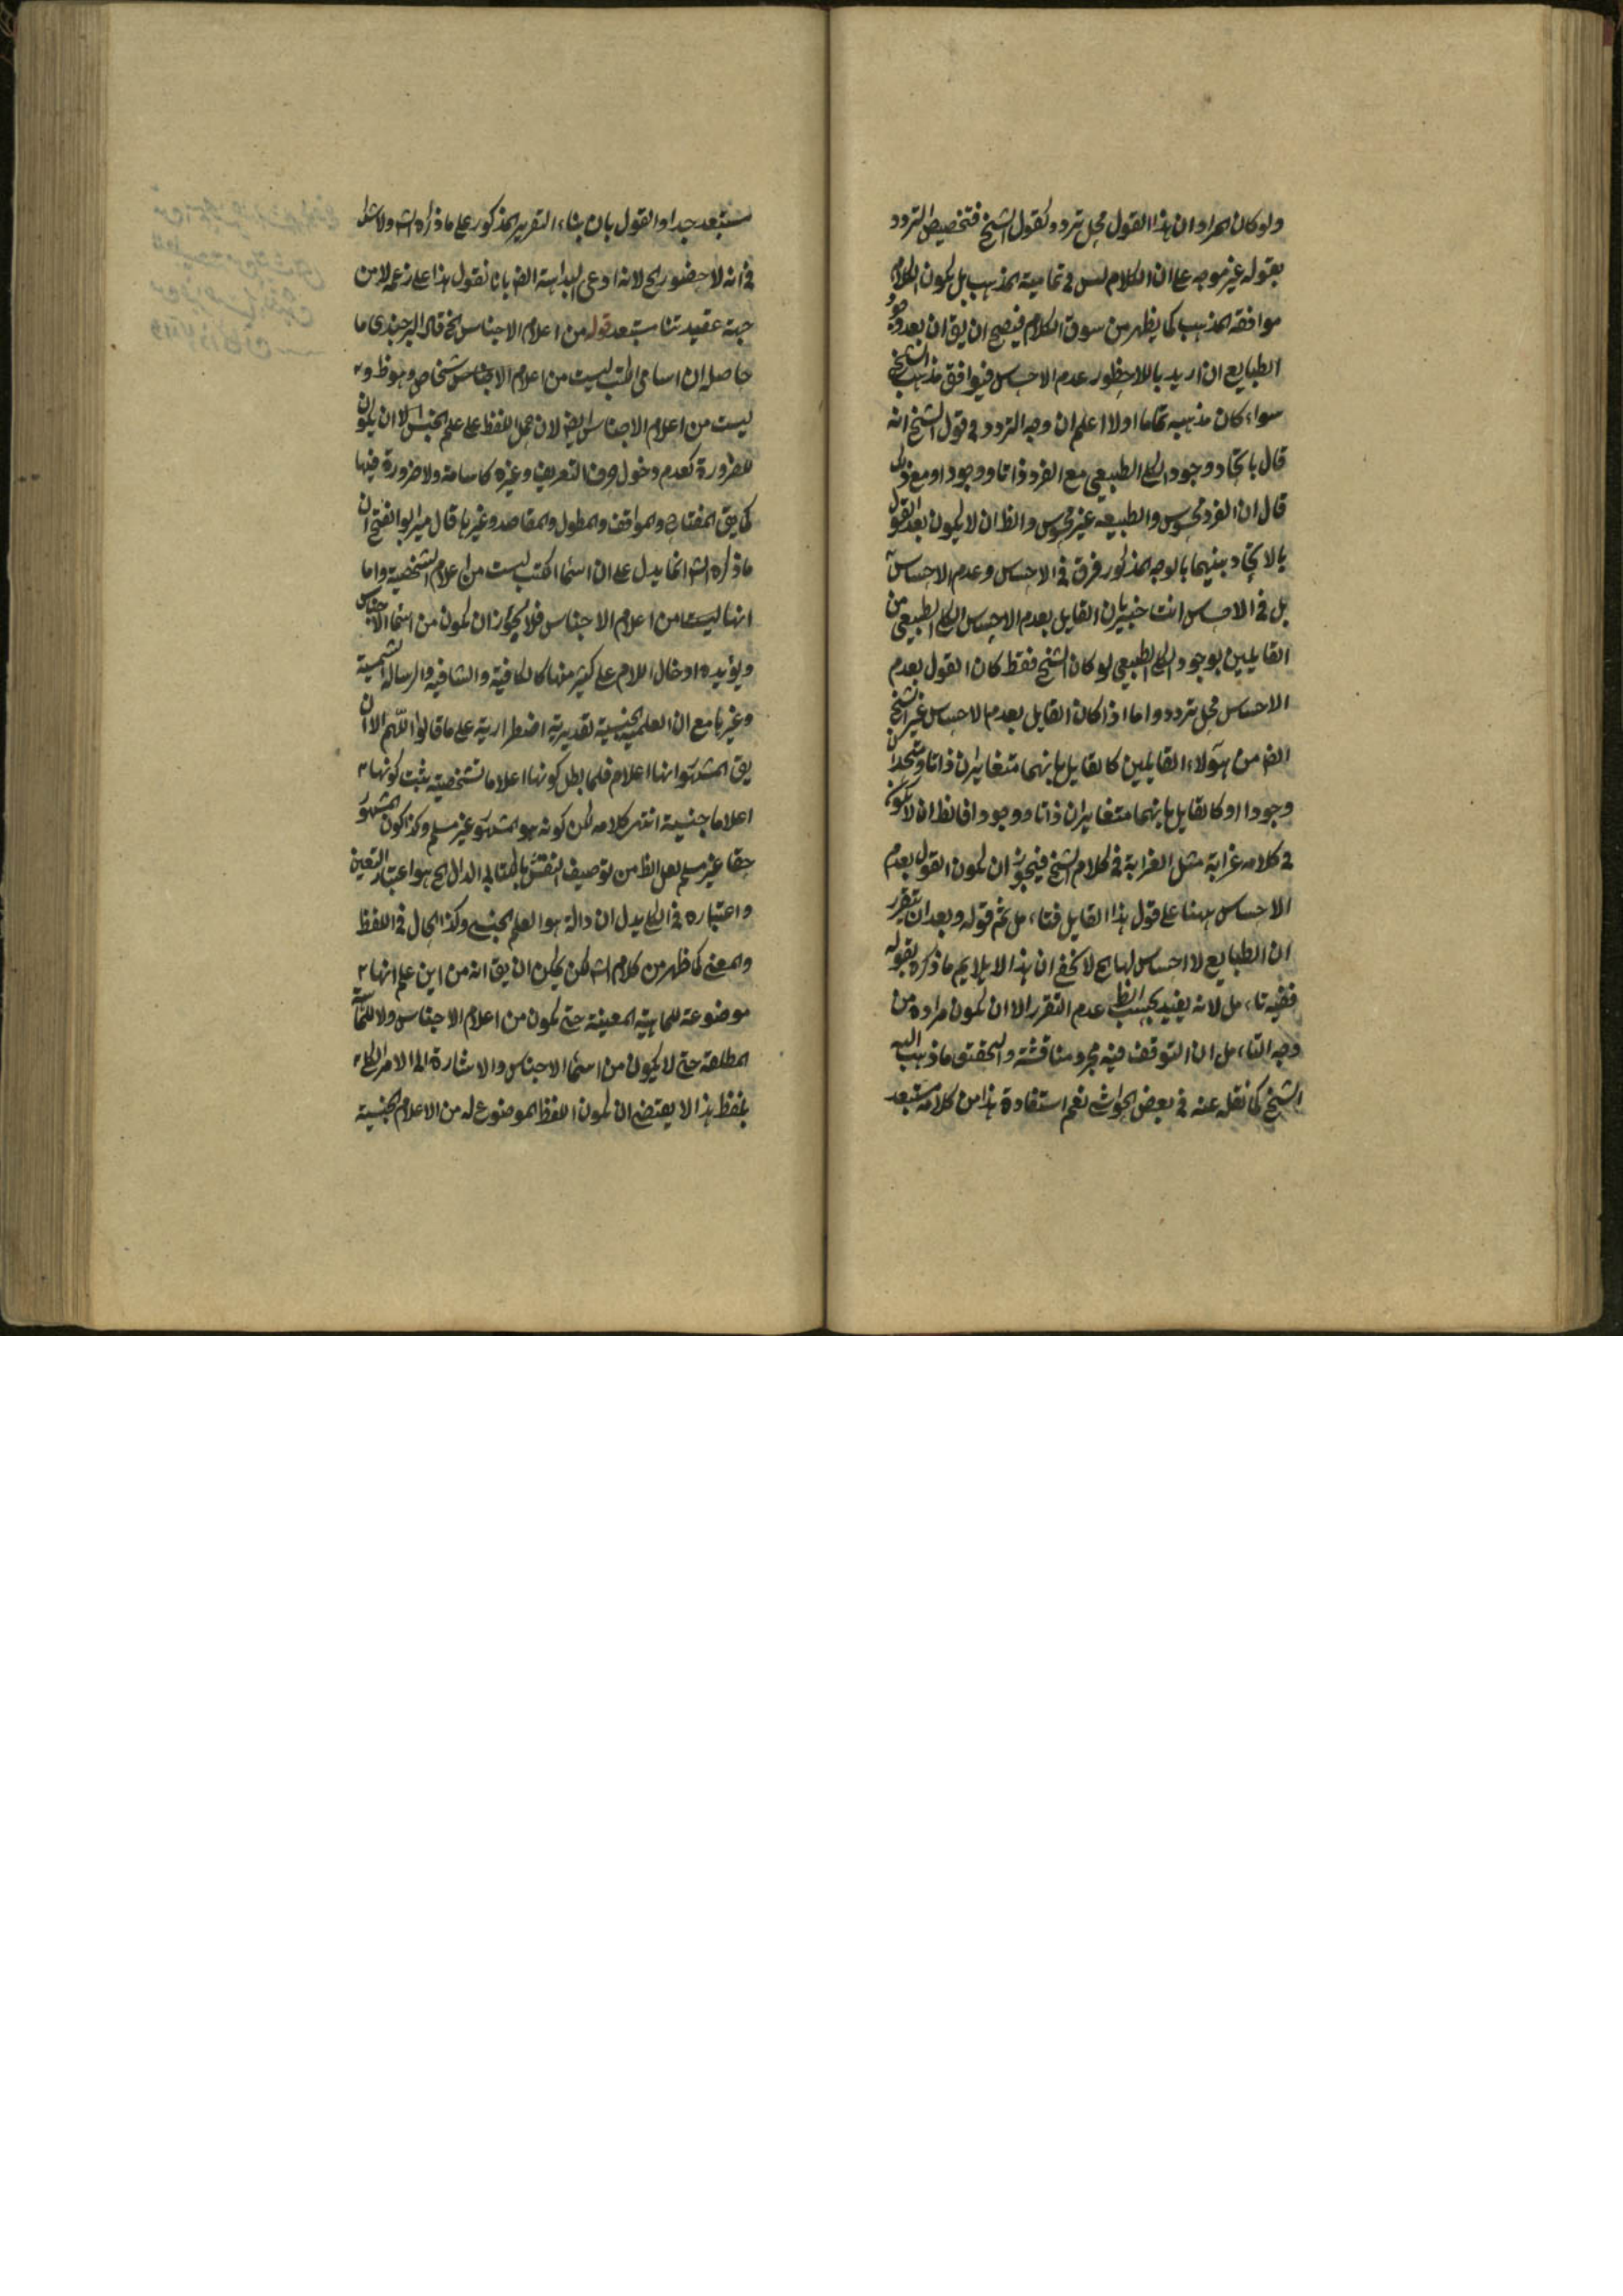 ولو كان المراد ان هذا القول محل تردد كقول الشيخ فتخصيص التردد
بقوله غير موجه على ان الكلام ليس في تمامية المذهب بل يكون الكلام
موافقه المذهب كما يظهر من سوق الكلام فيصح ان يق ان بعد
الطبايع ان اريد باللاحظور عدم الاحساس فيوافق مذهب الشيخ
سواء كان مذهبه تماما اولا اعلم ان وجه التردد في قول الشيخ انه
قال باتحاد وجود الكلي الطبيعي مع الفرد ذاتا ووجودا ومع ذلك
قال ان الفرد محسوس والطبيعه غير محسوس والظ ان لا يكون بعد القول
بالاتحاد بينهما بالوجه المذكور فرق في الاحساس وعدم الاحساس
بل في الاحساس انت خبير بان القايل بعدم الاحساس الكلي الطبيعي من
القايلين بوجود الكلي الطبيعي لو كان الشيخ فقط كان القول بعدم
الاحساس محل تردد واما اذا كان القايل بعدم الاحساس غير الشيخ
ايض من هؤلاء القايلين كالقايل بانهما متغايران ذاتا ومتحدان
وجودا او كالقايل بانهما متغايران ذاتا ووجودا فالظ ان لا يكون
في كلامه غرابة مثل الغرابة في كلام الشيخ فيجوز ان يكون القول بعدم
الاحساس ههنا على قول هذا القايل فتاءمل ثم قوله وبعد ان يتقرر
ان الطبايع لا احساس لها الخ لا يخفى ان هذا لا يلايم ما ذكره بقوله
ففيه تاءمل لانه يفيد بحسب الظ عدم التقرر الا ان يكون مراده من
وجه التاءمل ان التوقف فيه مجرد مناقشة والتحقيق ما ذهب اليه
الشيخ كما نقله عنه في بعض الحواشي نعم استفادة هذا من كلامه مستبعد
مستبعد جدا والقول بان بناء التقرير المذكور على ما ذكره الش ولا شك
في انه لا حضور الخ لانه ادعى البداهة ايض بانا نقول هذا على زعمه لا من
جهة عقيدتنا مستبعد قوله من اعلام الاجناس الخ قال البرجندي ما
حاصله ان اسامي الكتب ليست من اعلام الاشخاص وهو ظ و
ليست من اعلام الاجناس ايض لان حمل اللفظ على علم الجنس الا ان يكون
للضرورة كعدم دخول حرف التعريف وغيره كاسامة ولا ضرورة فيها
كما يق المفتاح والمواقف والمطول والمقاصد وغيرها قال مير ابو الفتح ان
ما ذكره الش انما يدل على ان اسماء الكتب ليست من اعلام الشخصية واما
انها ليست من اعلام الاجناس فلا يجوز ان يكون من اسماء الاجناس
ويؤيده ادخال اللام على كثير منها كالكافية والشافيه والرساله الشمسية
وغيرها مع ان العلمية الجنسية تقديرية اضطرارية على ما قالوا اللهم الا ان
يق المشهور انها اعلام فلما بطل كونها اعلاما شخصية يثبت كونها
اعلاما جنسية انتهى كلامه لكن كونه هو المشهور غير مسلم وكذا كون المشهور
حقا غير مسلم لعل الظ من توصيف النقش بالكتابي الدال الخ هو اعتبار التعين
واعتباره في الكلي يدل ان دالة هو العلم الجنسي وكذا الحال في اللفظ
والمعنى كما ظهر من كلام الش لكن يمكن ان يق انه من اين علم انها
موضوعة للماهية المعينة حتى يكون من اعلام الاجناس ولا للماهية
المطلقة حتى لا يكون من اسماء الاجناس والاشارة الى الامر الكلي
بلفظ هذا لا يقتضي ان يكون اللفظ الموضوع له من الاعلام الجنسية